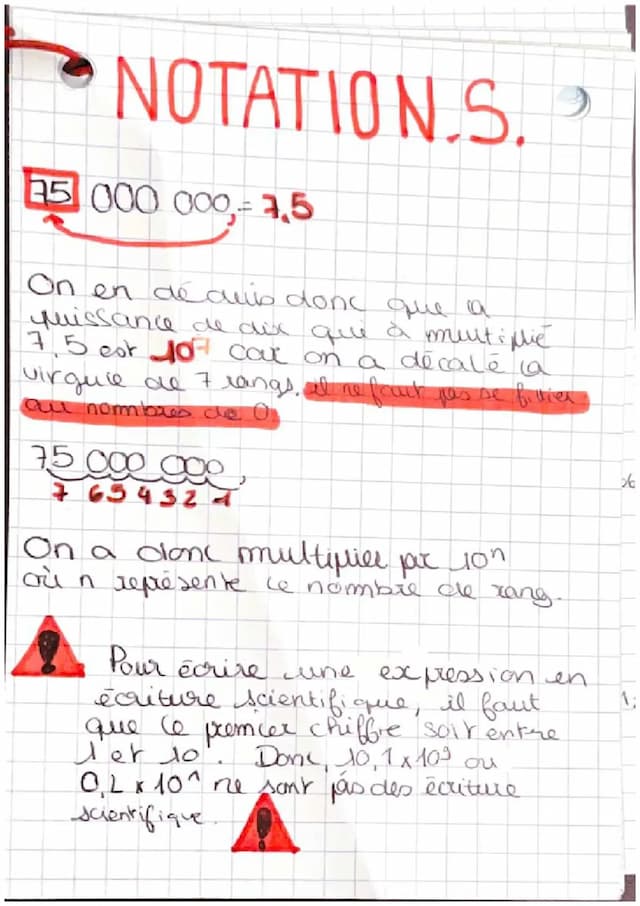 NOTATION.S.
75 000 000, = 7,5
On en déduis donc que la
puissance de dix que a multiplié
7,5 est 10⁷ car on a décalé la
virgule de 7 rangs. il ne faut pas se fifier
au nommbres de 0.
75 000 000,
7 6 5 4 3 2 1
On a donc multiplier par 10ⁿ
où n représente le nombre de rang.
Pour écrire une expression en
écriture scientifique, il faut
que le premier chiffre soit entre
1 et 10. Donc, 10,1 x 10⁹ ou
0,2 x 10¹ ne sont pas des écriture
scientifique.